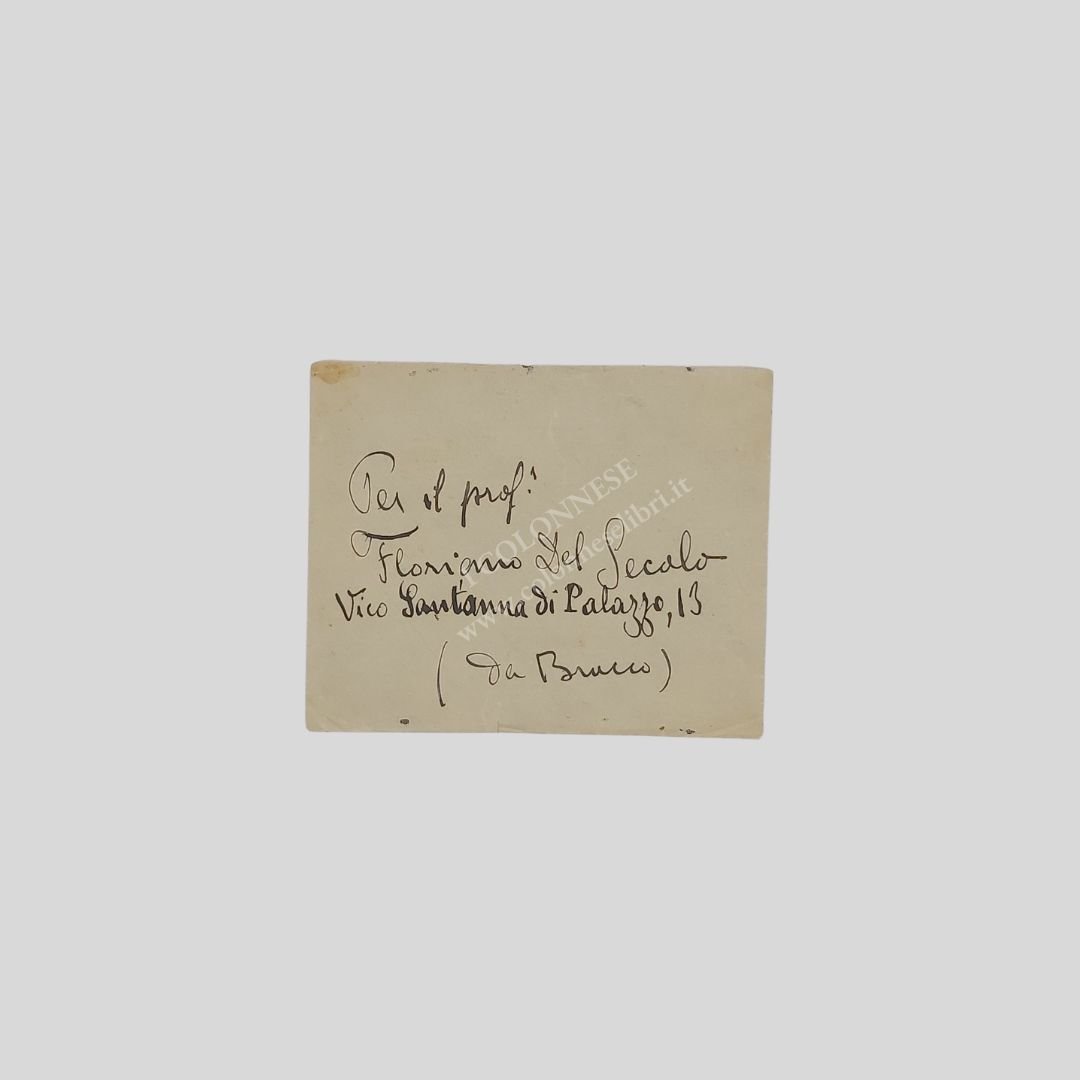 Per il prof.r
Floriano Del Secolo
Vico Santanna di Palazzo, 13
(da Bracco)
COLONNESE
www.colonneselibri.it